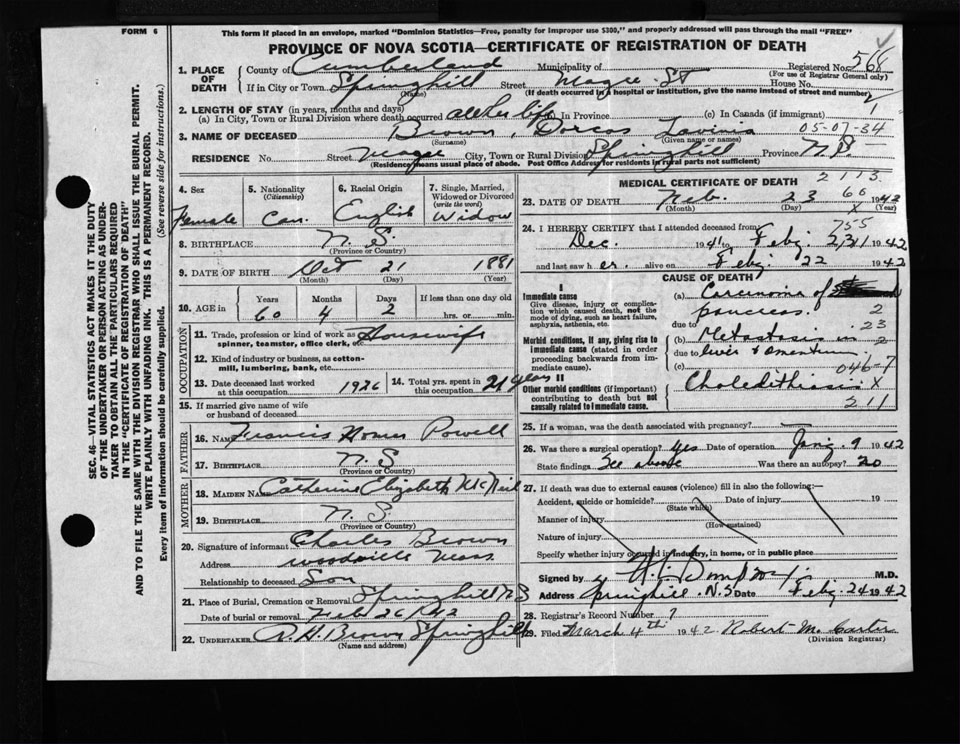 FORM 6
This form if placed in an envelope, marked "Dominion Statistics—Free, penalty for improper use $300," and properly addressed will pass through the mail "FREE"
PROVINCE OF NOVA SCOTIA—CERTIFICATE OF REGISTRATION OF DEATH
SEC. 46—VITAL STATISTICS ACT MAKES IT THE DUTY
OF THE UNDERTAKER OR PERSON ACTING AS UNDER-
TAKER TO OBTAIN ALL THE PARTICULARS REQUIRED
IN THE "CERTIFICATE OF REGISTRATION OF DEATH"
AND TO FILE THE SAME WITH THE DIVISION REGISTRAR WHO SHALL ISSUE THE BURIAL PERMIT.
WRITE PLAINLY WITH UNFADING INK. THIS IS A PERMANENT RECORD.
Every item of information should be carefully supplied. (See reverse side for instructions.)
1. PLACE OF DEATH
County of Cumberland Municipality of Registered No. 568
(For use of Registrar General only)
If in City or Town Springhill Street Magee St House No.
(Name) (If death occurred in a hospital or institution, give the name instead of street and number)
2
1
2. LENGTH OF STAY (in years, months and days)
(a) In City, Town or Rural Division where death occurred all her life In Province (c) In Canada (if immigrant)
3. NAME OF DECEASED Brown, Dorcas Lavinia 05-07-34
(Surname) (Given name or names)
RESIDENCE No. Street Magee City, Town or Rural Division Springhill Province N.S.
(Residence means usual place of abode. Post Office Address for Residents in rural parts not sufficient)
4. Sex Female
5. Nationality (Citizenship) Can.
6. Racial Origin English
7. Single, Married, Widowed or Divorced (write the word) Widow
8. BIRTHPLACE N. S.
(Province or Country)
9. DATE OF BIRTH Oct 21 1881
(Month) (Day) (Year)
10. AGE in Years Months Days If less than one day old
60 4 2 hrs. or min.
OCCUPATION
11. Trade, profession or kind of work as spinner, teamster, office clerk, etc. Housewife
12. Kind of industry or business, as cotton-mill, lumbering, bank, etc.
13. Date deceased last worked at this occupation 1926
14. Total yrs. spent in this occupation 21 years
15. If married give name of wife or husband of deceased
FATHER
16. NAME Francis Homer Powell
17. BIRTHPLACE N. S
(Province or Country)
MOTHER
18. MAIDEN NAME Catherine Elizabeth McNeil
19. BIRTHPLACE N. S.
(Province or Country)
20. Signature of informant Charles Brown
Address Woodville Mass
Relationship to deceased Son
21. Place of Burial, Cremation or Removal Springhill N S
Date of burial or removal Feb 26/42
22. UNDERTAKER Brown Springhill
(Name and address)
2113
MEDICAL CERTIFICATE OF DEATH
60
23. DATE OF DEATH Feb. 23 1942
(Month) (Day) (Year)
X
755
24. I HEREBY CERTIFY that I attended deceased from
Dec. 1941 to Feby 23 1942
and last saw her alive on Feby 22 1942
CAUSE OF DEATH
I
Immediate cause
Give disease, injury or complication which caused death, not the mode of dying, such as heart failure, asphyxia, asthenia, etc.
(a) Carcinoma of
pancreas. 2
due to 23
Morbid conditions, if any, giving rise to immediate cause (stated in order proceeding backwards from immediate cause).
Metastasis in 2
due to liver & omentum
(c) 046-7
II
Other morbid conditions (if important) contributing to death but not causally related to immediate cause.
X
211
25. If a woman, was the death associated with pregnancy?
26. Was there a surgical operation? Yes Date of operation 9 1942
State findings See above Was there an autopsy?
27. If death was due to external causes (violence) fill in also the following:—
Accident, suicide or homicide? Date of injury 19
(State which)
Manner of injury
(How sustained)
Nature of injury
Specify whether injury occurred in industry, in home, or in public place
Signed by M.D.
Address Springhill N.S Date Feby. 24 1942
28. Registrar's Record Number 7
29. Filed March 4th 1942 Robert M. Carter
(Division Registrar)